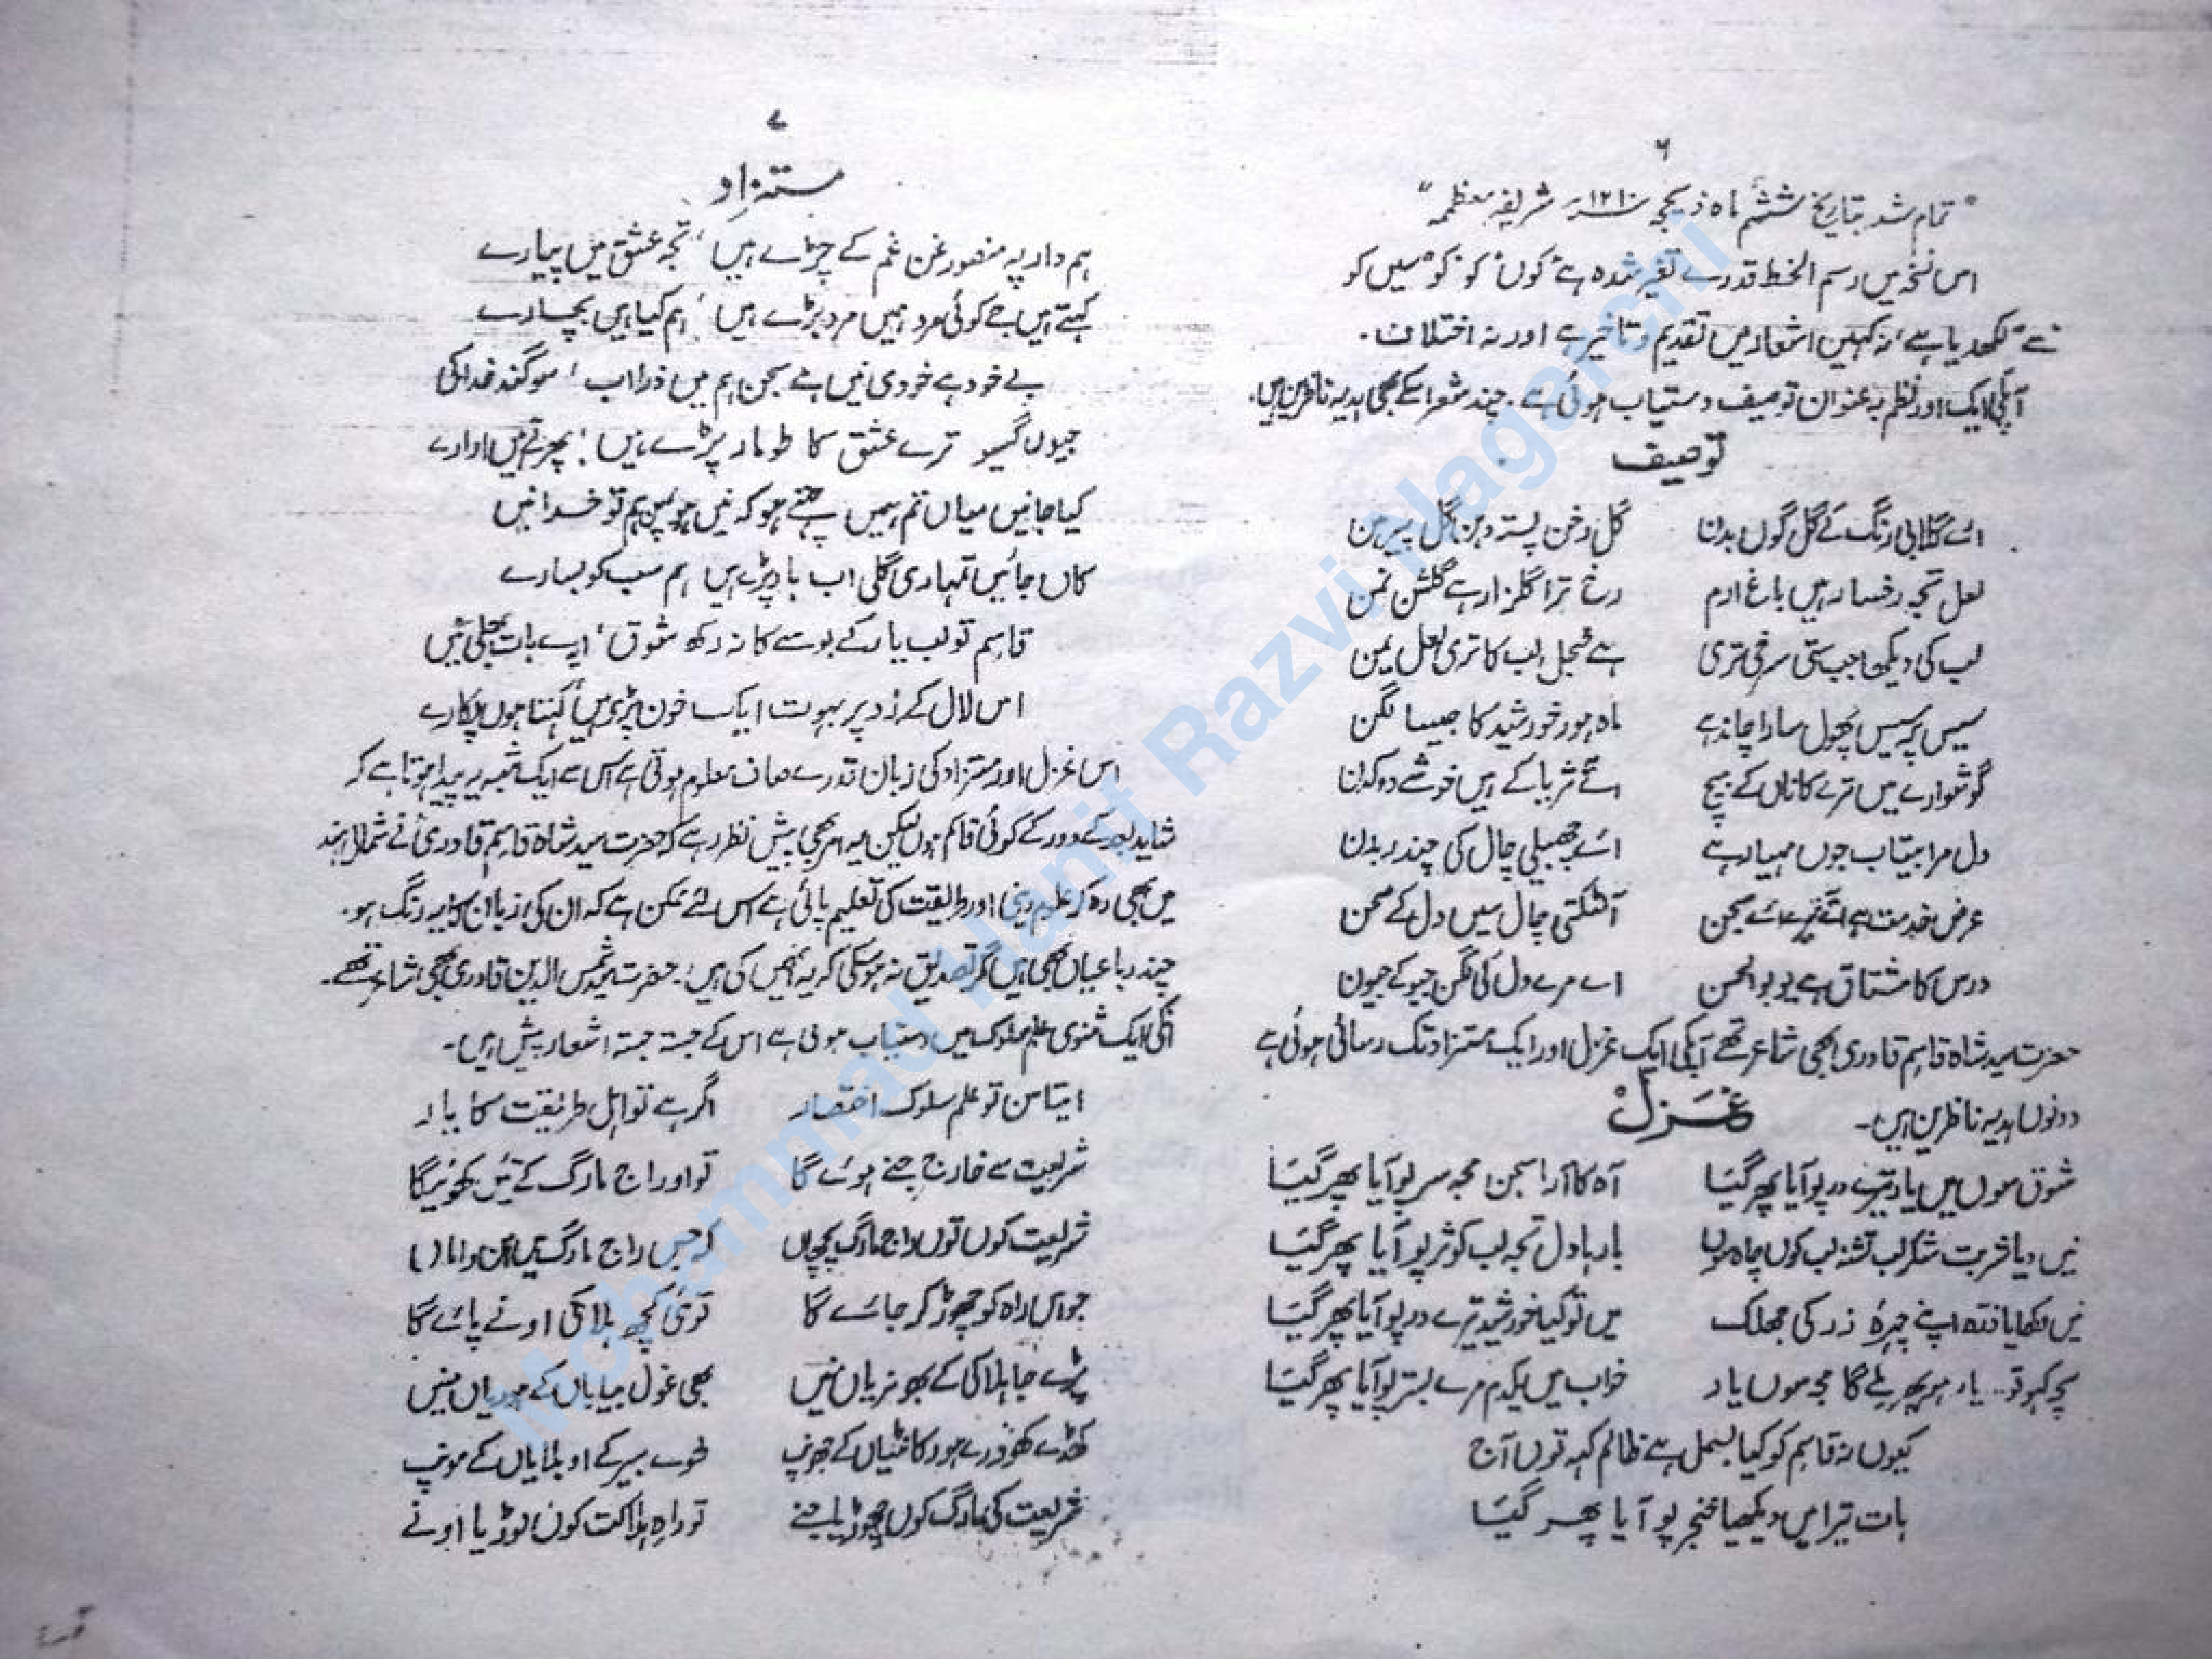 ۶
"تمام شد بتاریخ ششم ماہ ذیحجہ سنہ ۱۲۱۰ شریفہ معظمہ"
اس نسخہ میں رسم الخط قدرے تغیر شدہ ہے "کوں" کو "کو" "سیں کو
سے" لکھدیا ہے، نہ کہیں اشعار میں تقدیم و تاخیر ہے اور نہ اختلاف۔
آپکی ایک اور نظم بہ عنوان توصیف دستیاب ہوئی ہے۔ چند شعر اسکے بھی ہدیہ ناظرین ہیں۔
توصیف
اے گلابی رنگ کے گل گوں بدن گل رخن پستہ دہن گل پیرہن
لعل تجہ رخسار ہیں باغ ارم رخ ترا گلزار ہے گلشن نمن
لب کی دیکھا جب ستی سرخی تری ہے خجل لب کا تری لعل یمن
سیس پر سیس پھول سارا چاند ہے ماہ ہور خورشید کا جیسا لگن
گوشوارے میں ترے کاناں کے بیچ اے ثریا کے ہیں خوشے دو کرن
دل مرا بیتاب جوں سیارہے اے چھبیلی چال کی چندر بدن
عرض خدمت ہے اے سجن آ لٹکتی چال سیں دل کے صحن
درس کا مشتاق ہے یو بوالحسن اے مرے دل کی لگن جیو کے جیون
حضرت سید شاہ قاسم قادری بھی شاعر تھے آپکی ایک غزل اور ایک مستزاد تک رسائی ہوئی ہے
دونوں ہدیہ ناظرین ہیں۔
غزل
شوق سوں میں یار تیرے در پو آیا پھر گیا آہ کا آرا سجن مجہ سر پو آیا پھر گیا
نیں دیا شربت شکر لب تشنہ لب کوں چاہ سوں بارہا دل تجہ لب کوثر پو آیا پھر گیا
نیں دکھایا فتنہ اپنے چہرۂ زر کی جھلک میں تو کیا خورشید تیرے در پو آیا پھر گیا
سچ کہو تو.. یار ہو پھر ملے گا مجہ سوں یار خواب میں یکدم مرے بستر پو آیا پھر گیا
کیوں نہ قاسم کو کیا بسمل ہے ظالم کہہ توں آج
بات تیرا میں دیکھیا خنجر پو آیا پھر گیا
۷
مستزاد
ہم دار پہ منصور نمن غم کے چڑے ہیں، تجہ عشق میں پیارے
کہتے ہیں جے کوئی مرد ہمیں مرد بڑے ہیں، ہم کیا ہیں بچارے
بے خود ہے خودی نیں ہے سجن ہم میں ذرا اب، سوگند خدا کی
جیوں گیسو ترے عشق کا طومار پڑے ہیں، پھرتے ہیں اوارے
کیا جانیں میاں تم ہمیں اپنے ہو کہ نیں ہو پن ہم تو خدا نیں
کاں جائیں تمہاری گلی اب ہار پڑے ہیں ہم سب کو بسارے
قاسم تو لب یار کے بوسے کا نہ رکھ شوق، ایسے بات بھلی نیں
اس لال کے زد پر بہوت ایک خون پڑی میں کہتا ہوں پکارے
اس غزل اور مستزاد کی زبان قدرے صاف معلوم ہوتی ہے اس سے ایک شبہ یہ پیدا ہوتا ہے کہ
شاید بعد کے دور کے کوئی قاسم ہوں لیکن یہ امر بھی پیش نظر رہے کہ حضرت سید شاہ قاسم قادری نے شمالی ہند
میں بھی رہ کر علم دینی اور طریقت کی تعلیم پائی ہے اس لئے ممکن ہے کہ ان کی زبان کا یہ رنگ ہو۔
چند رباعیاں بھی ہیں مگر تصدیق نہ ہو سکی کہ یہ انہیں کی ہیں۔ حضرت سید شمس الدین قادری بھی شاعر تھے۔
انکی ایک مثنوی علم سلوک میں دستیاب ہوئی ہے اس کے جستہ جستہ اشعار پیش ہیں۔
ایتا سن تو علم سلوک اختصار اگر ہے تو اہل طریقت کا یار
شریعت سے خارج جنے ہوئے گا تو او راج مارگ کے تیں کھوئیگا
شریعت کوں توں راج مارگ پچھاں کہ جس راج مارگ میں امن و اماں
جو اس راہ کو چھوڑ کر جائے گا توئی کچھ ہلاکی او نے پائے گا
پڑے جا ہلاکی کے بھونریاں منیں بھی غول بیاباں کے منیں
کھڈے کھودرے ہور کانٹیاں کے جھونپ طوب بیر کے او بلایاں کے سونپ
شریعت کی مارگ کوں چھوڑیا جنے تو راہ ہلاکت کوں لوڑیا اونے